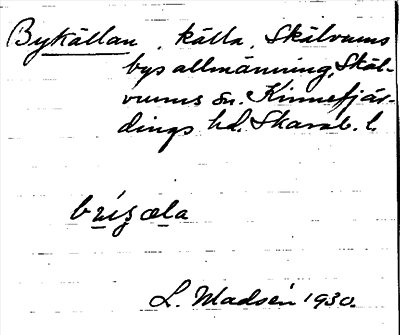 Bykällan, källa, Skälvums
bys allmänning, Skäl-
vums sn. Kinnefjär-
dings hd. Skarab. l.
L. Madsén 1930.